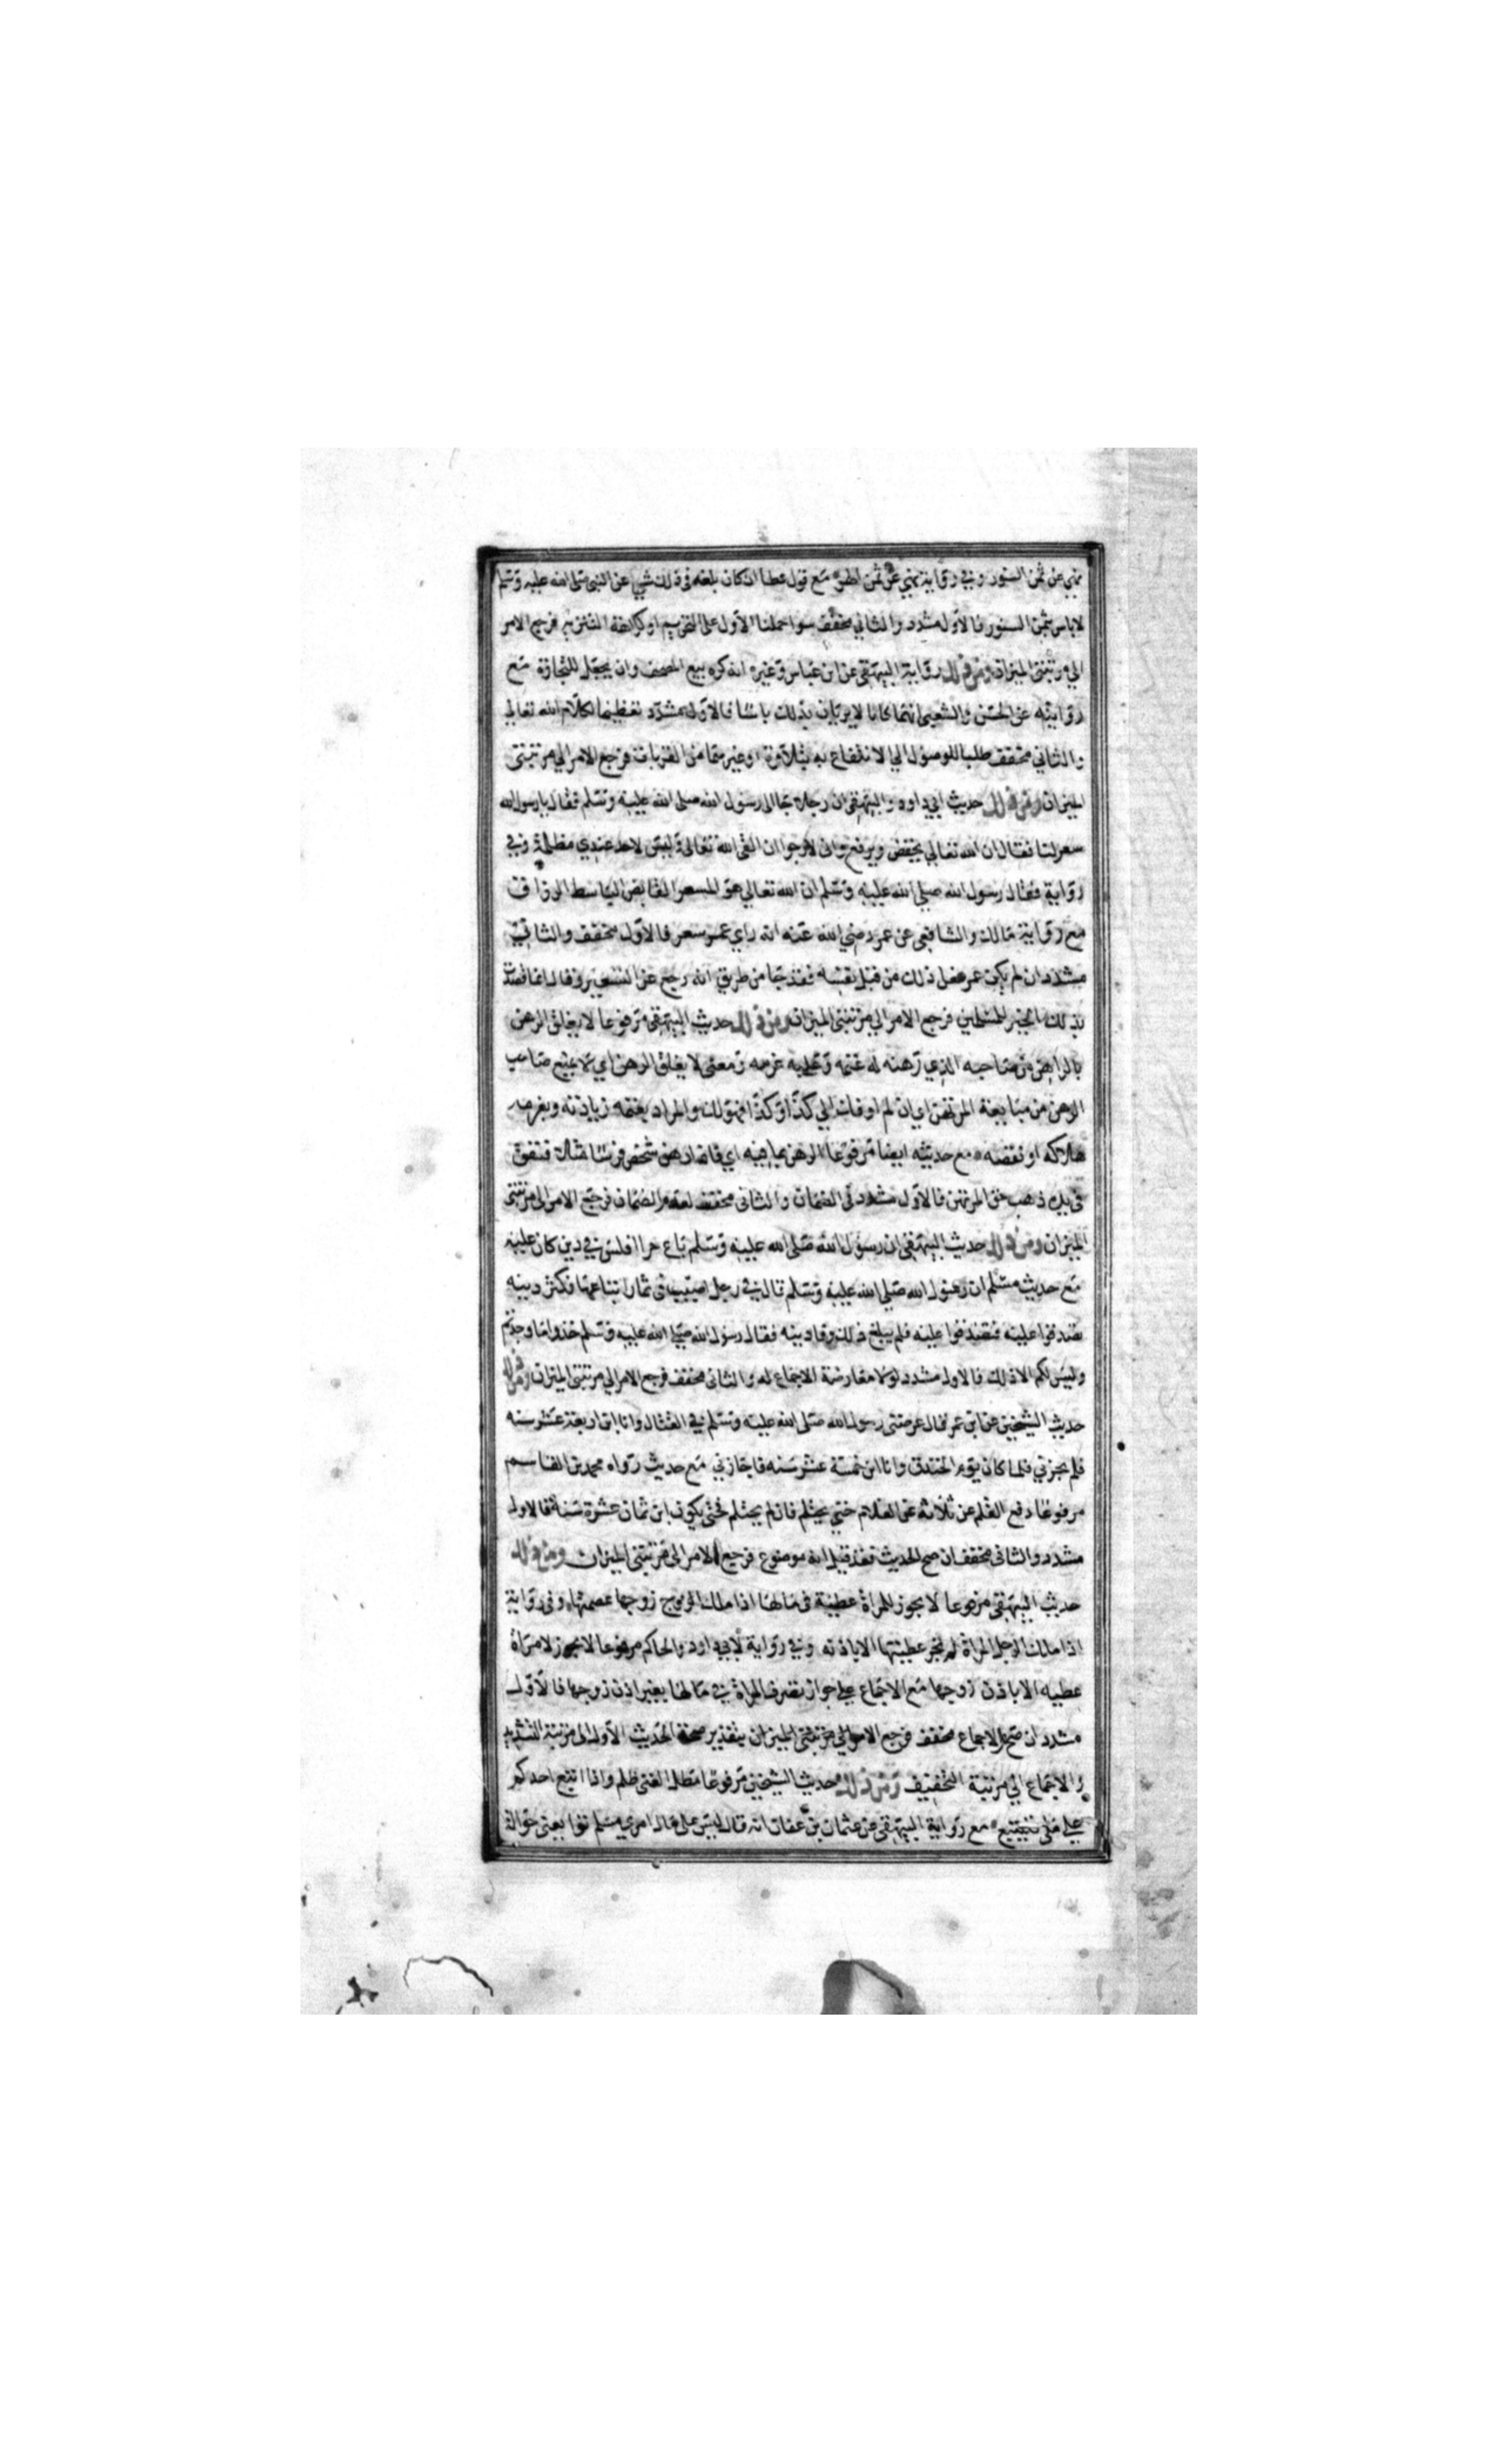 نهي عن ثمن السنور وفي رواية نهي عن ثمن الهر مع قول عطا ان كان بلغه في ذلك شي عن النبي صلى الله عليه وسلم
لا باس بثمن السنور فالاول مشدد والثاني مخفف سوا حملنا الاول على التحريم او كراهة التنزيه فرجع الامر
الي مرتبتي الميزان ومن ذلك رواية البيهقي عن ابن عباس وغيره انه كره بيع المصحف وان يجعل للتجارة مع
روايته عن الحسن والشعبي انهما كانا لا يريان بذلك باسا فالاول مشدد تعظيما لكلام الله تعالي
والثاني مخفف طلبا للوصول الي الانتفاع به بتلاوة او غيرها من القربات فرجع الامر الي مرتبتي
الميزان ومن ذلك حديث ابي داود والبيهقي ان رجلا جا الى رسول الله صلى الله عليه وسلم فقال يا رسول الله
سعر لنا فقال ان الله تعالي يخفض ويرفع واني لارجوا ان القى الله تعالى وليس لاحد عندي مظلمة وفي
رواية فقال رسول الله صلي الله عليه وسلم ان الله تعالي هو المسعر القابض الباسط الرزاق
مع رواية مالك والشافعي عن عمر رضي الله عنه انه راي عمر سعر فالاول مخفف والثاني
مشدد ان لم يكن عمر فعل ذلك من قبل نفسه فقد جا من طريق انه رجع عن التسعير وقال انما قصدت
بذلك الخير للمسلمين فرجع الامر الي مرتبتي الميزان ومن ذلك حديث البيهقي مرفوعا لا يغلق الرهن
بالراهن من صاحبه الذي رهنه له غنمه وعليه غرمه ومعنى لا يغلق الرهن اي لا يمتنع صاحب
الرهن من مبايعة المرتهن اي ان لم اوفك الي كذا وكذا فهو لك والمراد بغنمه زيادته وبغرمه
هلاكه او نقصه مع حديثه ايضا مرفوعا الرهن بما فيه اي فاذا رهن شخص فرسا مثلا فنفق
في يده ذهب حق المرتهن فالاول مشدد في الضمان والثاني مخفف لعدم الضمان فرجع الامر الى مرتبتي
الميزان ومن ذلك حديث البيهقي ان رسول الله صلى الله عليه وسلم باع حرا افلس في دين كان عليه
مع حديث مسلم ان رسول الله صلي الله عليه وسلم قال في رجل اصيب في ثمار ابتاعها فكثر دينه
تصدقوا عليه فتصدقوا عليه فلم يبلغ ذلك وفا دينه فقال رسول الله صلي الله عليه وسلم خذوا ما وجدتم
وليس لكم الا ذلك فالاول مشدد لولا معارضة الاجماع له والثاني مخفف فرجع الامر الي مرتبتي الميزان ومن ذلك
حديث الشيخين عن ابن عمر قال عرضني رسول الله صلى الله عليه وسلم في القتال وانا ابن اربعة عشر سنه
فلم يجزني فلما كان يوم الخندق وانا ابن خمسة عشر سنه فاجازني مع حديث رواه محمد بن القاسم
مرفوعا رفع القلم عن ثلاثة عن الغلام حتي يحتلم فان لم يحتلم فحتى يكون ابن ثمان عشرة سنة فالاول
مشدد والثاني مخفف ان صح الحديث فقد قيل انه موضوع فرجع الامر الى مرتبتي الميزان ومن ذلك
حديث البيهقي مرفوعا لا يجوز للمراة عطية في مالها اذا ملك الزوج زوجها عصمتها وفي رواية
اذا ملك الرجل المراة لم تجز عطيتها الا باذنه وفي رواية لابي داود والحاكم مرفوعا لا يجوز لامراة
عطيه الا باذن زوجها مع الاجماع علي جواز تصرف المراة في مالها بغير اذن زوجها فالاول
مشدد ان صح والاجماع مخفف فرجع الامر الي مرتبتي الميزان بتقدير صحة الحديث الاول الى مرتبة التشديد
والاجماع الي مرتبة التخفيف ومن ذلك حديث الشيخين مرفوعا مطل الغني ظلم واذا اتبع احدكم
علي ملي فليتبع مع رواية البيهقي عن عثمان بن عفان انه قال ليس على مال امري مسلم توا يعني حوالة